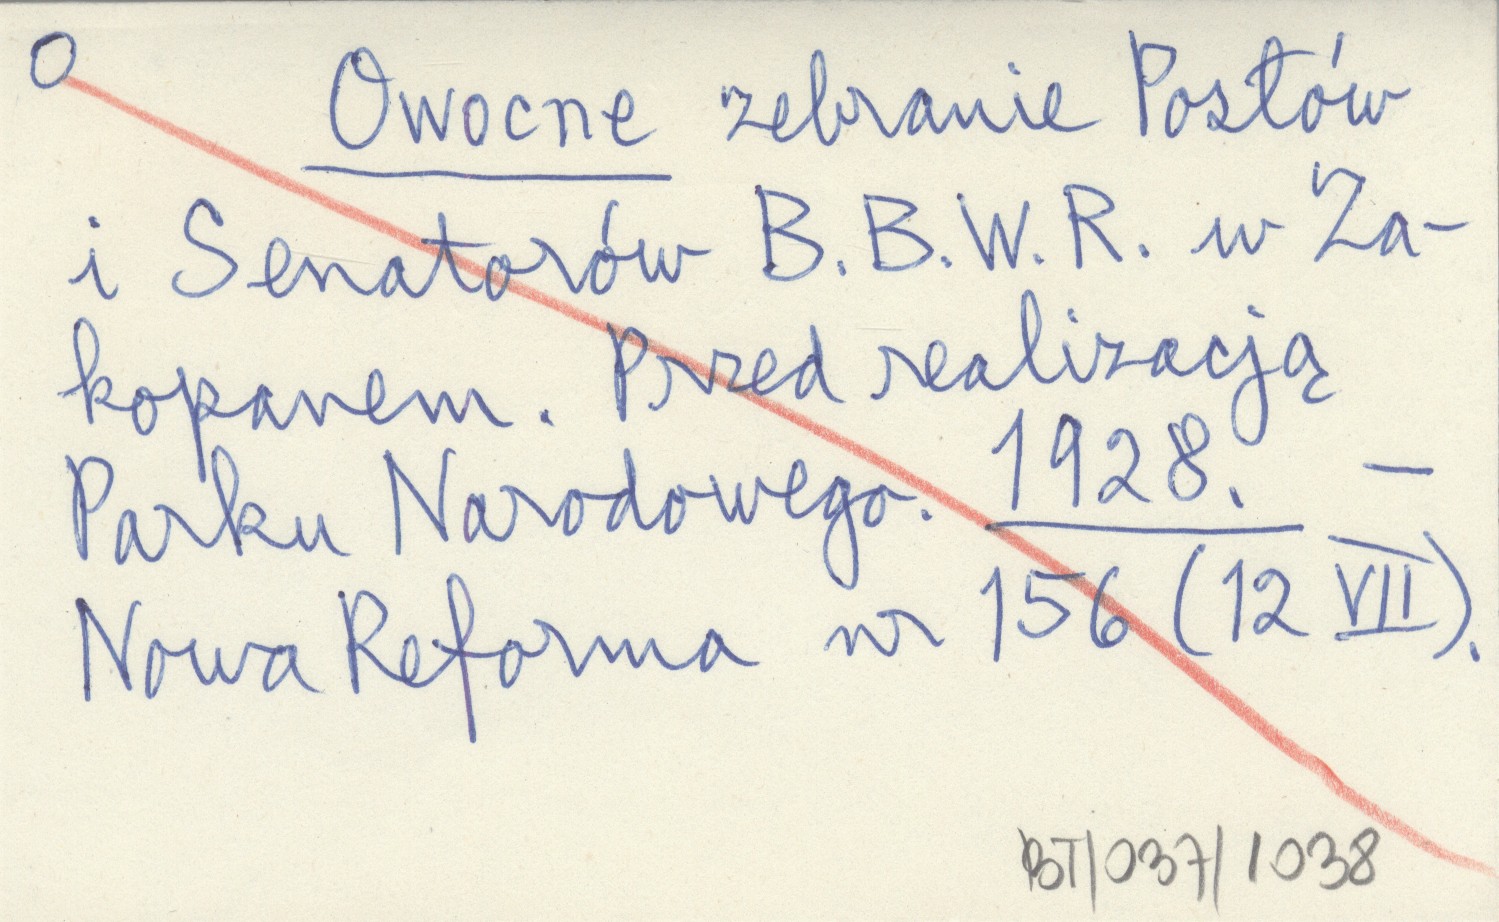 O
Owocne zebranie Posłów
i Senatorów B.B.W.R. w Za-
kopanem. Przed realizacją
Parku Narodowego. 1928. —
Nowa Reforma nr 156 (12 VII).
BT/037/1038